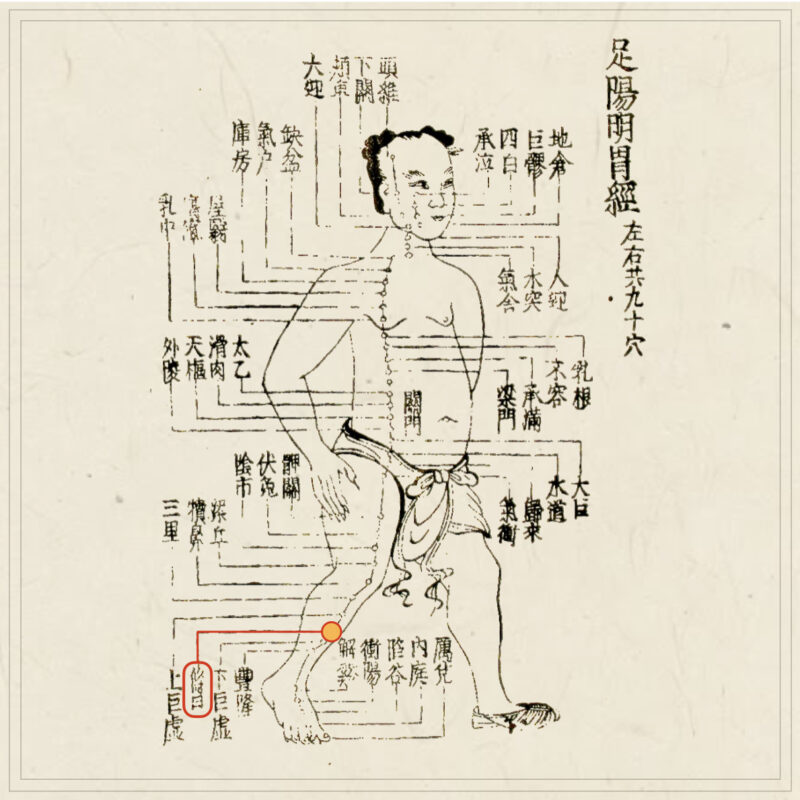 足陽明胃經
左右共九十穴
頭維
下關
頰車
大迎
地倉
巨髎
四白
承泣
缺盆
氣户
庫房
屋翳
乳中
人迎
水突
氣舍
乳根
不容
承滿
梁門
太乙
滑肉
天樞
外陵
關門
大巨
水道
歸來
氣衝
髀關
伏兔
陰市
梁丘
犢鼻
三里
厲兌
內庭
陷谷
衝陽
解谿
豐隆
下巨虛
上巨虛